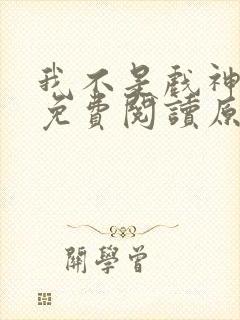 我不是戲神
免費閱讀原
關學曾